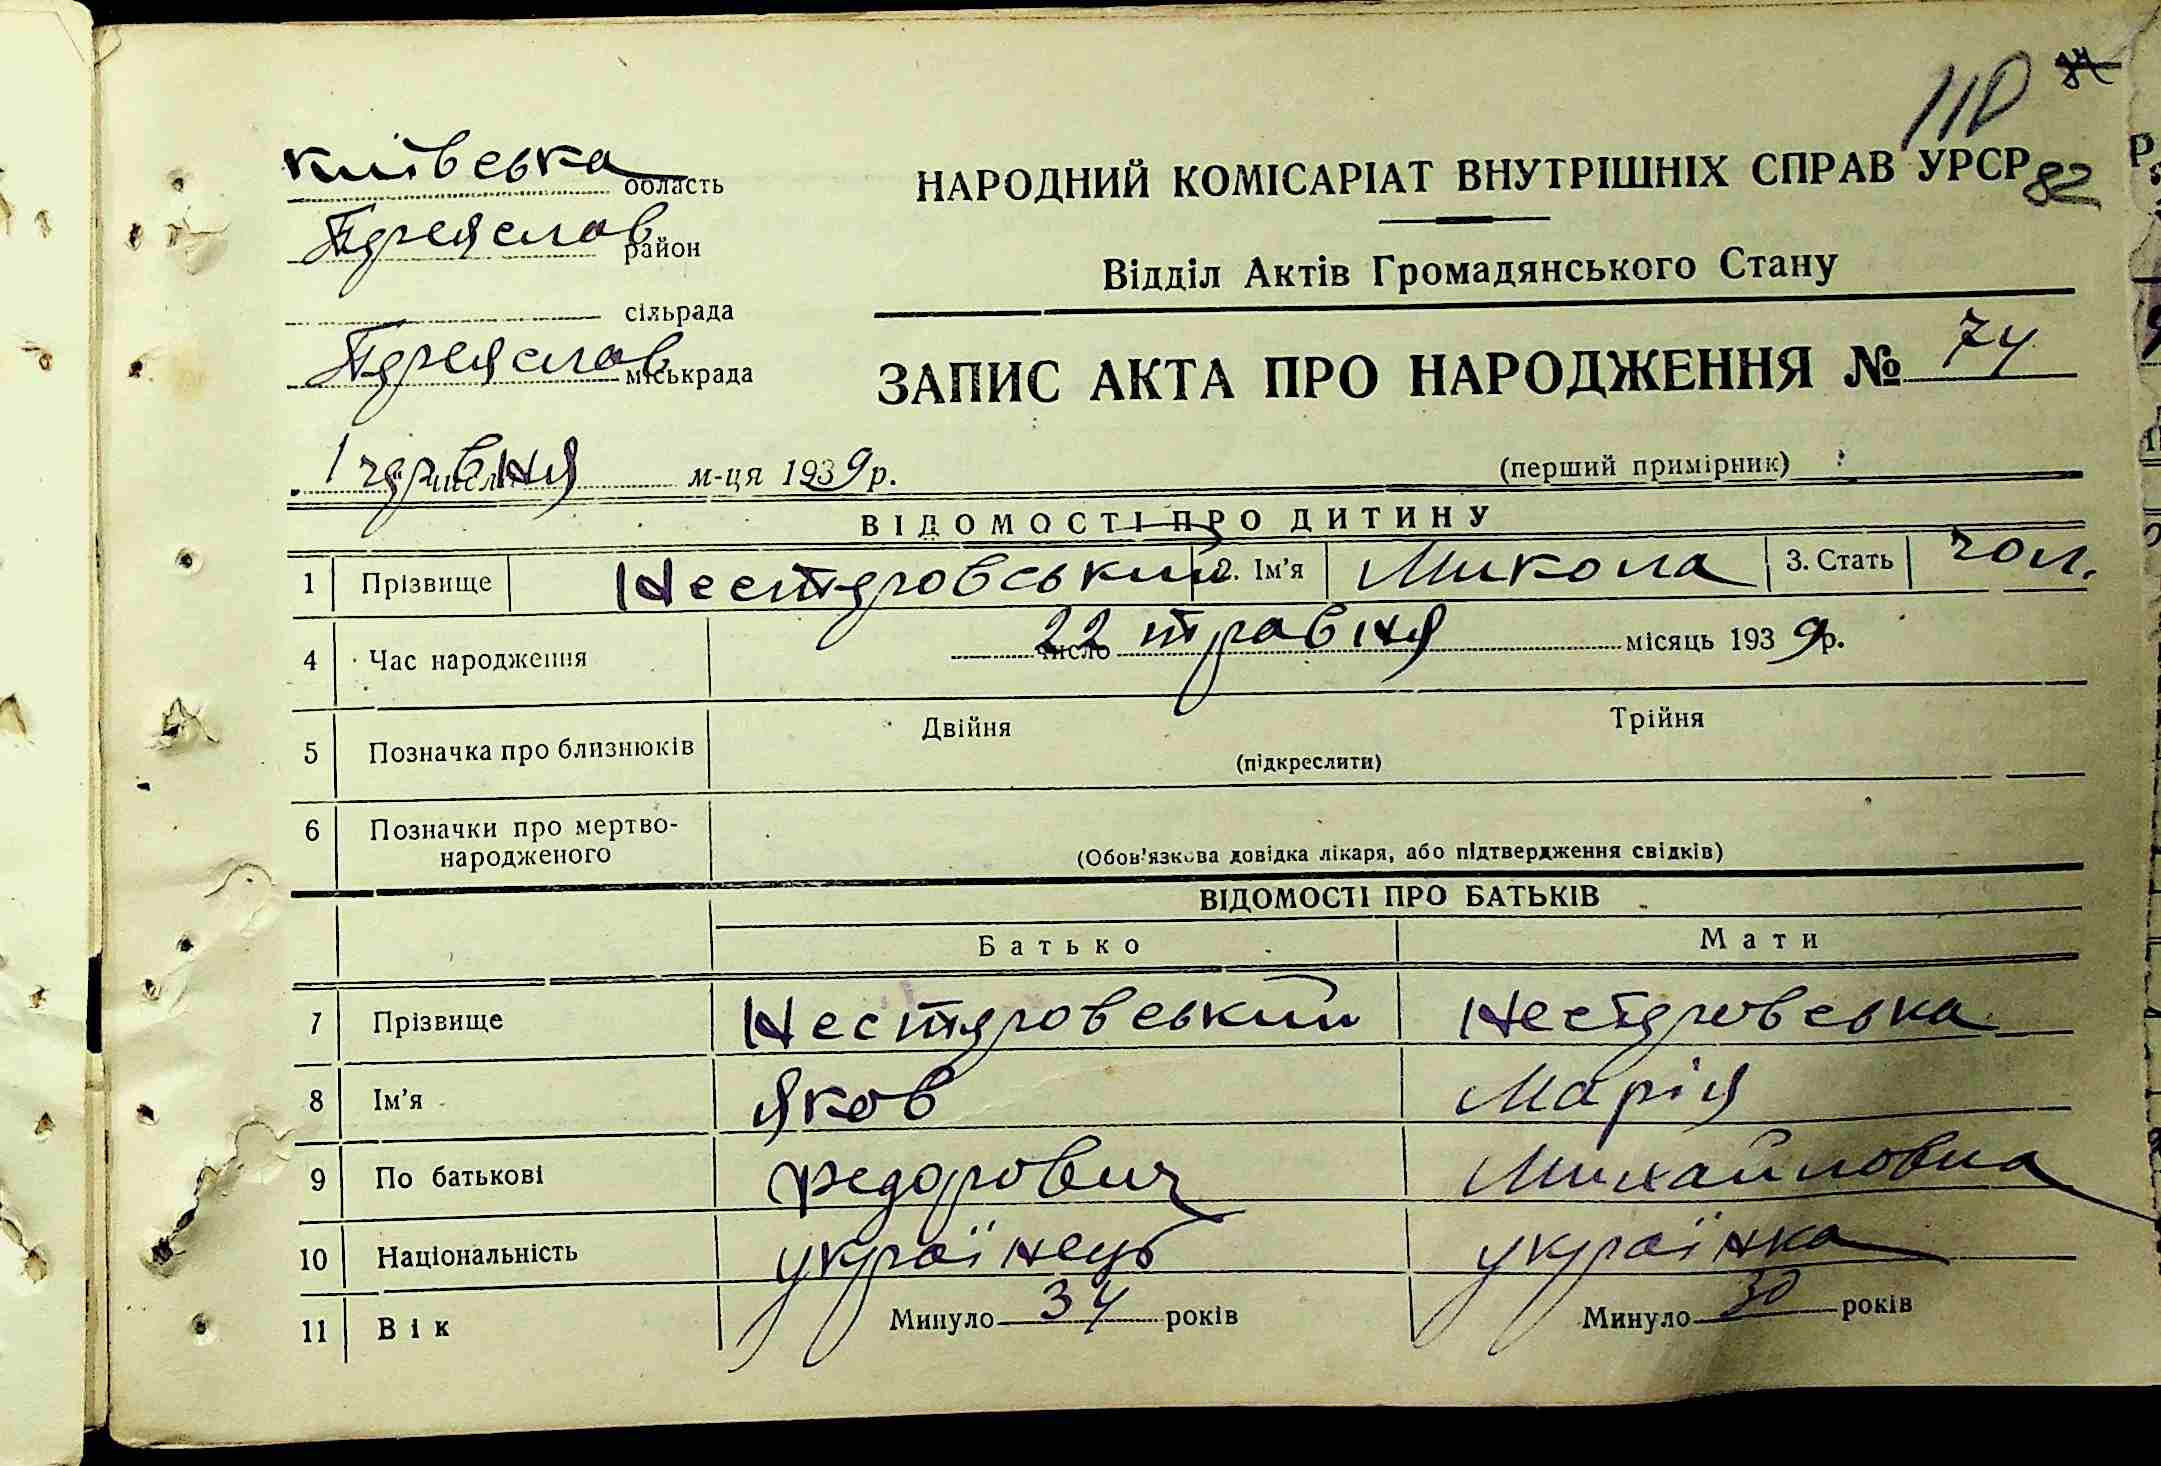 110 84
Київська область
НАРОДНИЙ КОМІСАРІАТ ВНУТРІШНІХ СПРАВ УРСР
82
Переяслав район
Відділ Актів Громадянського Стану
сільрада
Переяслав міськрада
ЗАПИС АКТА ПРО НАРОДЖЕННЯ № 74
1 червня числа м-ця 1939 р.
(перший примірник)
ВІДОМОСТІ ПРО ДИТИНУ
1 Прізвище Нестеровський 2. Ім'я Микола 3. Стать чол.
4 Час народження 22 число травня місяць 1939 р.
5 Позначка про близнюків Двійня Трійня
(підкреслити)
6 Позначки про мертво-
народженого
(Обов'язкова довідка лікаря, або підтвердження свідків)
ВІДОМОСТІ ПРО БАТЬКІВ
Батько Мати
7 Прізвище Нестеровський Нестеровська
8 Ім'я Яков Марія
9 По батькові Федорович Михайловна
10 Національність українець українка
11 Вік Минуло 34 років Минуло 30 років